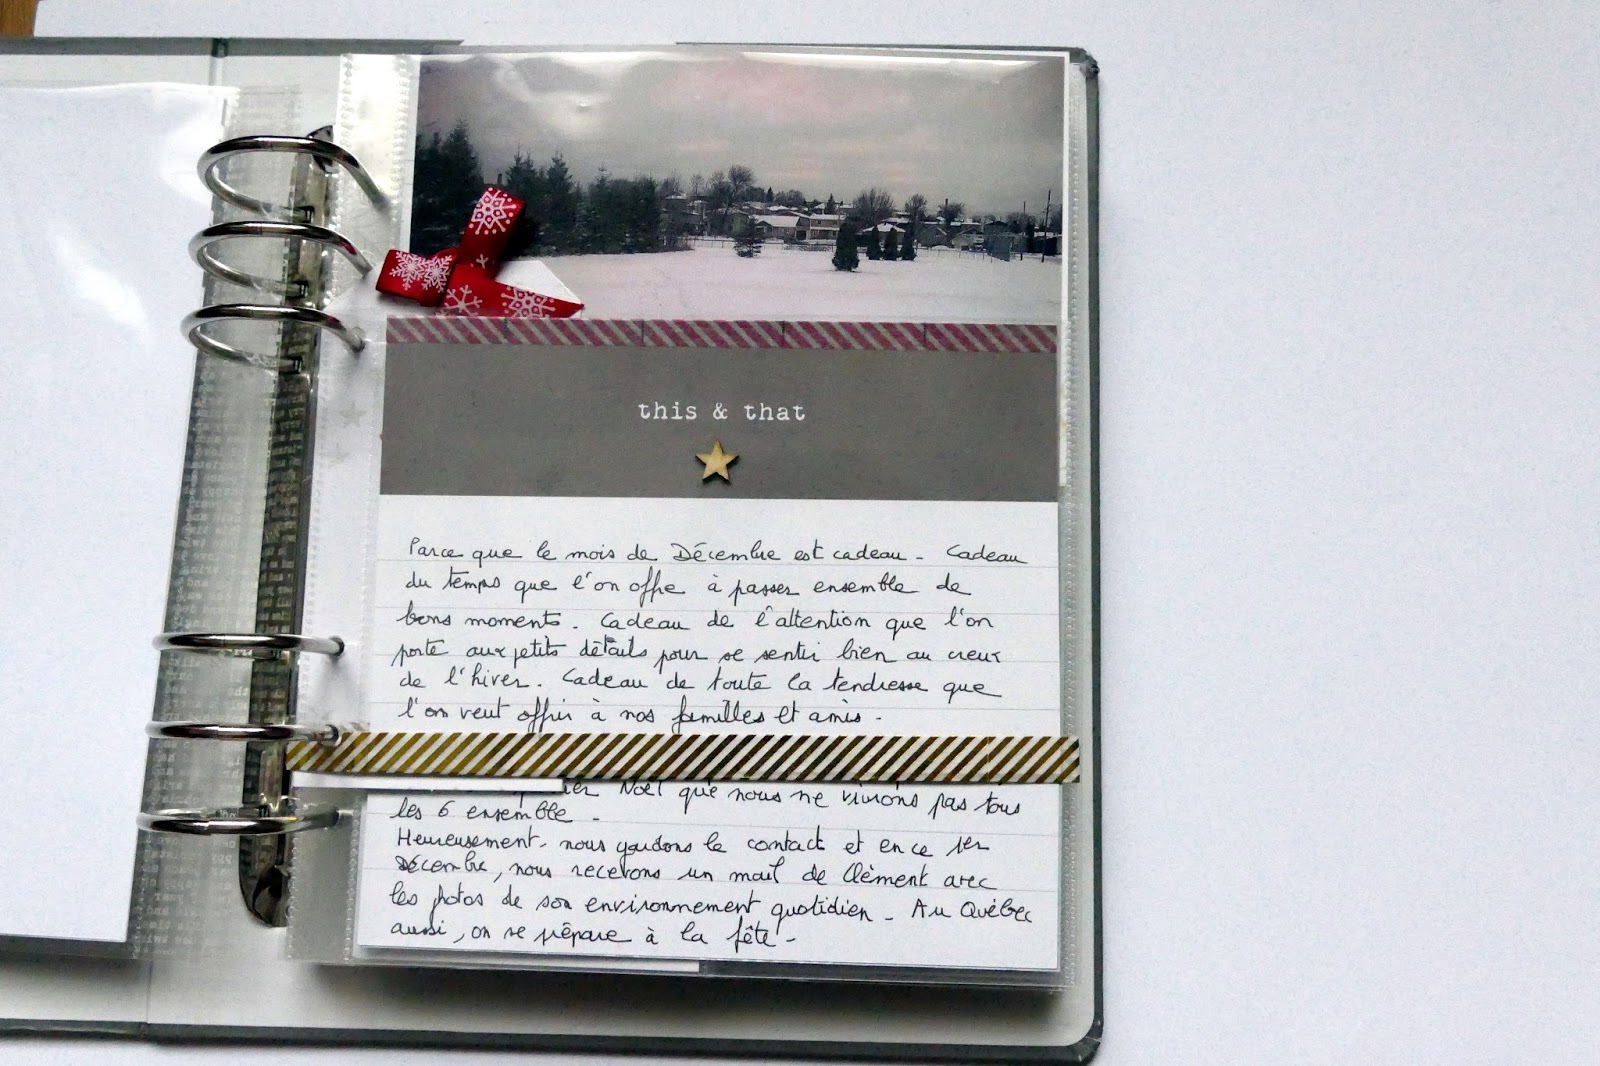 this & that
Parce que le mois de Décembre est cadeau - Cadeau
du temps que l'on offre à passer ensemble de
bons moments. Cadeau de l'attention que l'on
porte aux petits détails pour se sentir bien au creux
de l'hiver. Cadeau de toute la tendresse que
l'on veut offrir à nos familles et amis -
Noël que nous ne vivrons pas tous
les 6 ensemble.
Heureusement, nous gardons le contact et en ce 1er
Décembre, nous recevons un mail de Clément avec
les photos de son environnement quotidien - Au Québec
aussi, on se prépare à la fête -